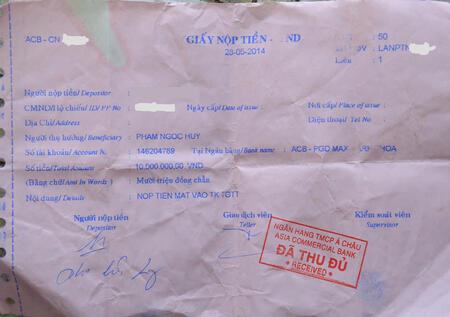 ACB - CN
GIẤY NỘP TIỀN - VND
28-05-2014
: 50
: LANPTK
Liên : 1
Người nộp tiền/ Depositor :
CMND/Hộ chiếu/ ID/ PP No : Ngày cấp/ Date of issue : Nơi cấp/ Place of issue :
Địa Chỉ/ Address : Điện thoại/ Tel No :
Người thụ hưởng/ Beneficiary : PHAM NGOC HUY
Số tài khoản/ Account N. : 146204789 Tại Ngân hàng/ Bank name : ACB - PGD MAX HOA
Số tiền/Total Amount : 10,000,000.00 VND
(Bằng chữ/Amt In Words ) : Mười triệu đồng chẵn
Nội dung / Details : NOP TIEN MAT VAO TK TGTT
Người nộp tiền Giao dịch viên Kiểm soát viên
Depositor Teller Supervisor
NGÂN HÀNG TMCP Á CHÂU
ASIA COMMERCIAL BANK
ĐÃ THU ĐỦ
RECEIVED